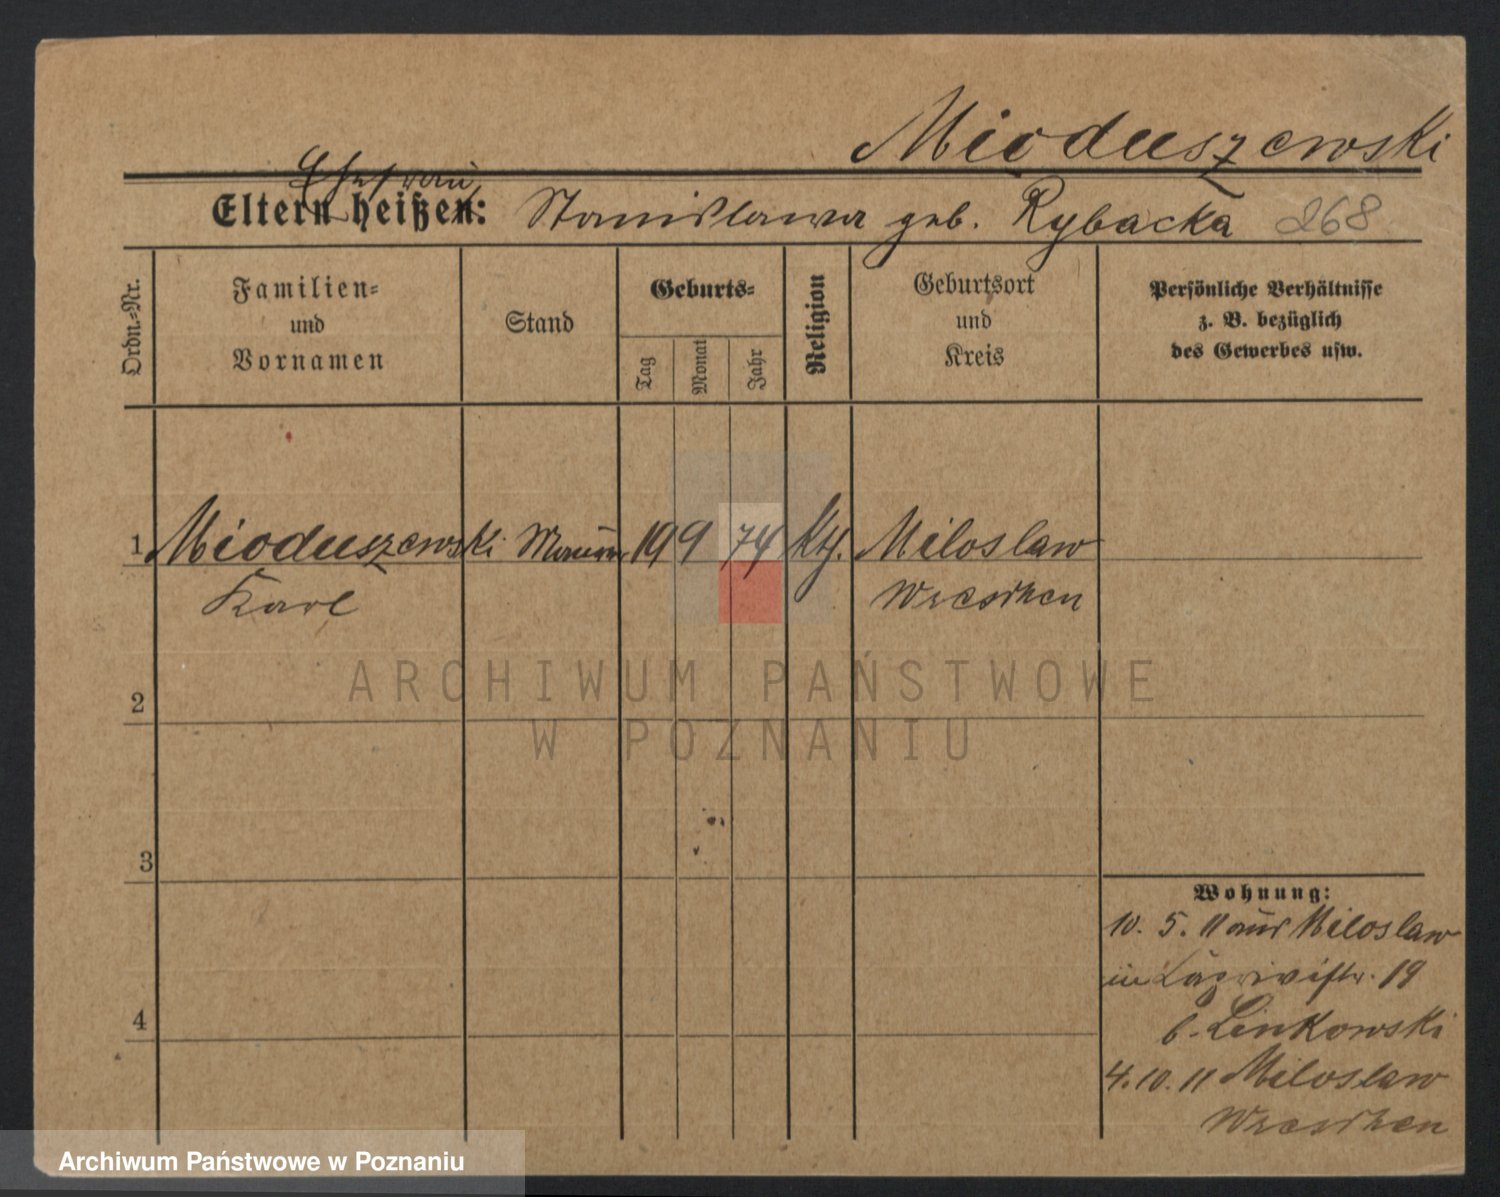 Mioduszewski
Ehefrau
Eltern heißen: Stanislawa geb. Rybacka 268
Ordn.=Nr.
Familien=
und
Vornamen
Stand
Geburts=
Tag
Monat
Jahr
Religion
Geburtsort
und
Kreis
Persönliche Verhältnisse
z. B. bezüglich
des Gewerbes usw.
1 Mioduszewski Maurer 19 9 74 kth. Miloslaw
Karl Wreschen
ARCHIWUM PAŃSTWOWE
W POZNANIU
2
3
Wohnung:
10. 5. 11 aus Miloslaw
in 19
b. Linkowski
4
4. 10. 11 Miloslaw
Wreschen
Archiwum Państwowe w Poznaniu